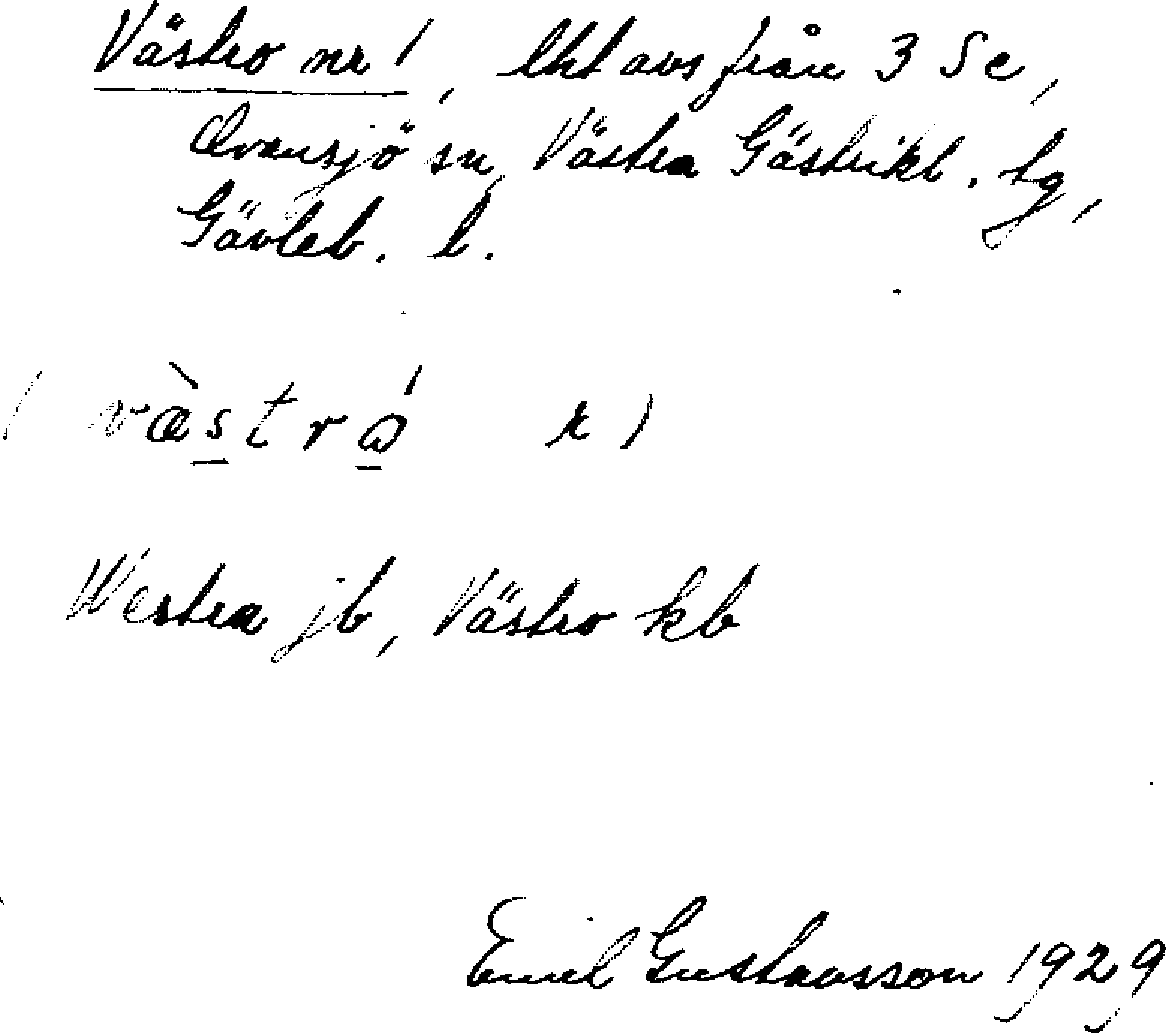 Västro nr 1, lht avs från 3 Se,
Ovansjö sn, Västra Gästrikl. tg,
Gävleb. l.
( væ̀strǿ r )
Westra jb, Västro kb
Emil Gustavsson 1929